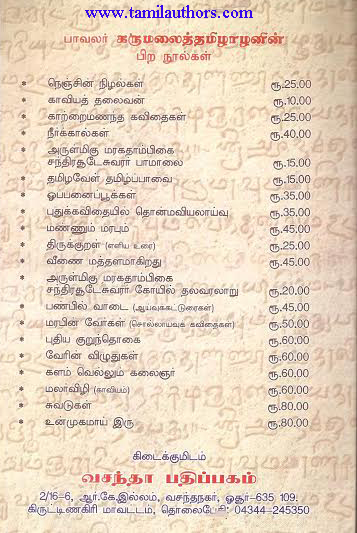 www.tamilauthors.com
பாவலர் கருமலைத்தமிழாழனின்
பிற நூல்கள்
* நெஞ்சின் நிழல்கள் ரூ.25.00
* காவியத் தலைவன் ரூ.10.00
* காற்றைமணந்த கவிதைகள் ரூ.25.00
* நீர்க்கால்கள் ரூ.40.00
* அருள்மிகு மரகதாம்பிகை
சந்திரசூடேசுவரர் பாமாலை ரூ.15.00
* தமிழவேள் தமிழ்ப்பாவை ரூ.15.00
* ஒப்பனைப்பூக்கள் ரூ.35.00
* புதுக்கவிதையில் தொன்மவியலாய்வு ரூ.35.00
* மண்ணும் மரபும் ரூ.45.00
* திருக்குறள் (எளிய உரை) ரூ.25.00
* வீணை மத்தளமாகிறது ரூ.45.00
* அருள்மிகு மரகதாம்பிகை
சந்திரசூடேசுவரர் கோயில் தலவரலாறு ரூ.20.00
* பண்பில் வாடை (ஆய்வுக்கட்டுரைகள்) ரூ.45.00
* மரபின் வேர்கள் (சொல்லாய்வுக் கவிதைகள்) ரூ.50.00
* புதிய குறுந்தொகை ரூ.60.00
* வேரின் விழுதுகள் ரூ.60.00
* களம் வெல்லும் கலைஞர் ரூ.60.00
* மலர்விழி (காவியம்) ரூ.60.00
* சுவடுகள் ரூ.80.00
* உன்முகமாய் இரு ரூ.80.00
கிடைக்குமிடம்
வசந்தா பதிப்பகம்
2/16-6, ஆர்.கே.இல்லம், வசந்தநகர், ஓசூர்-635 109.
கிருட்டிணகிரி மாவட்டம், தொலைபேசி: 04344-245350